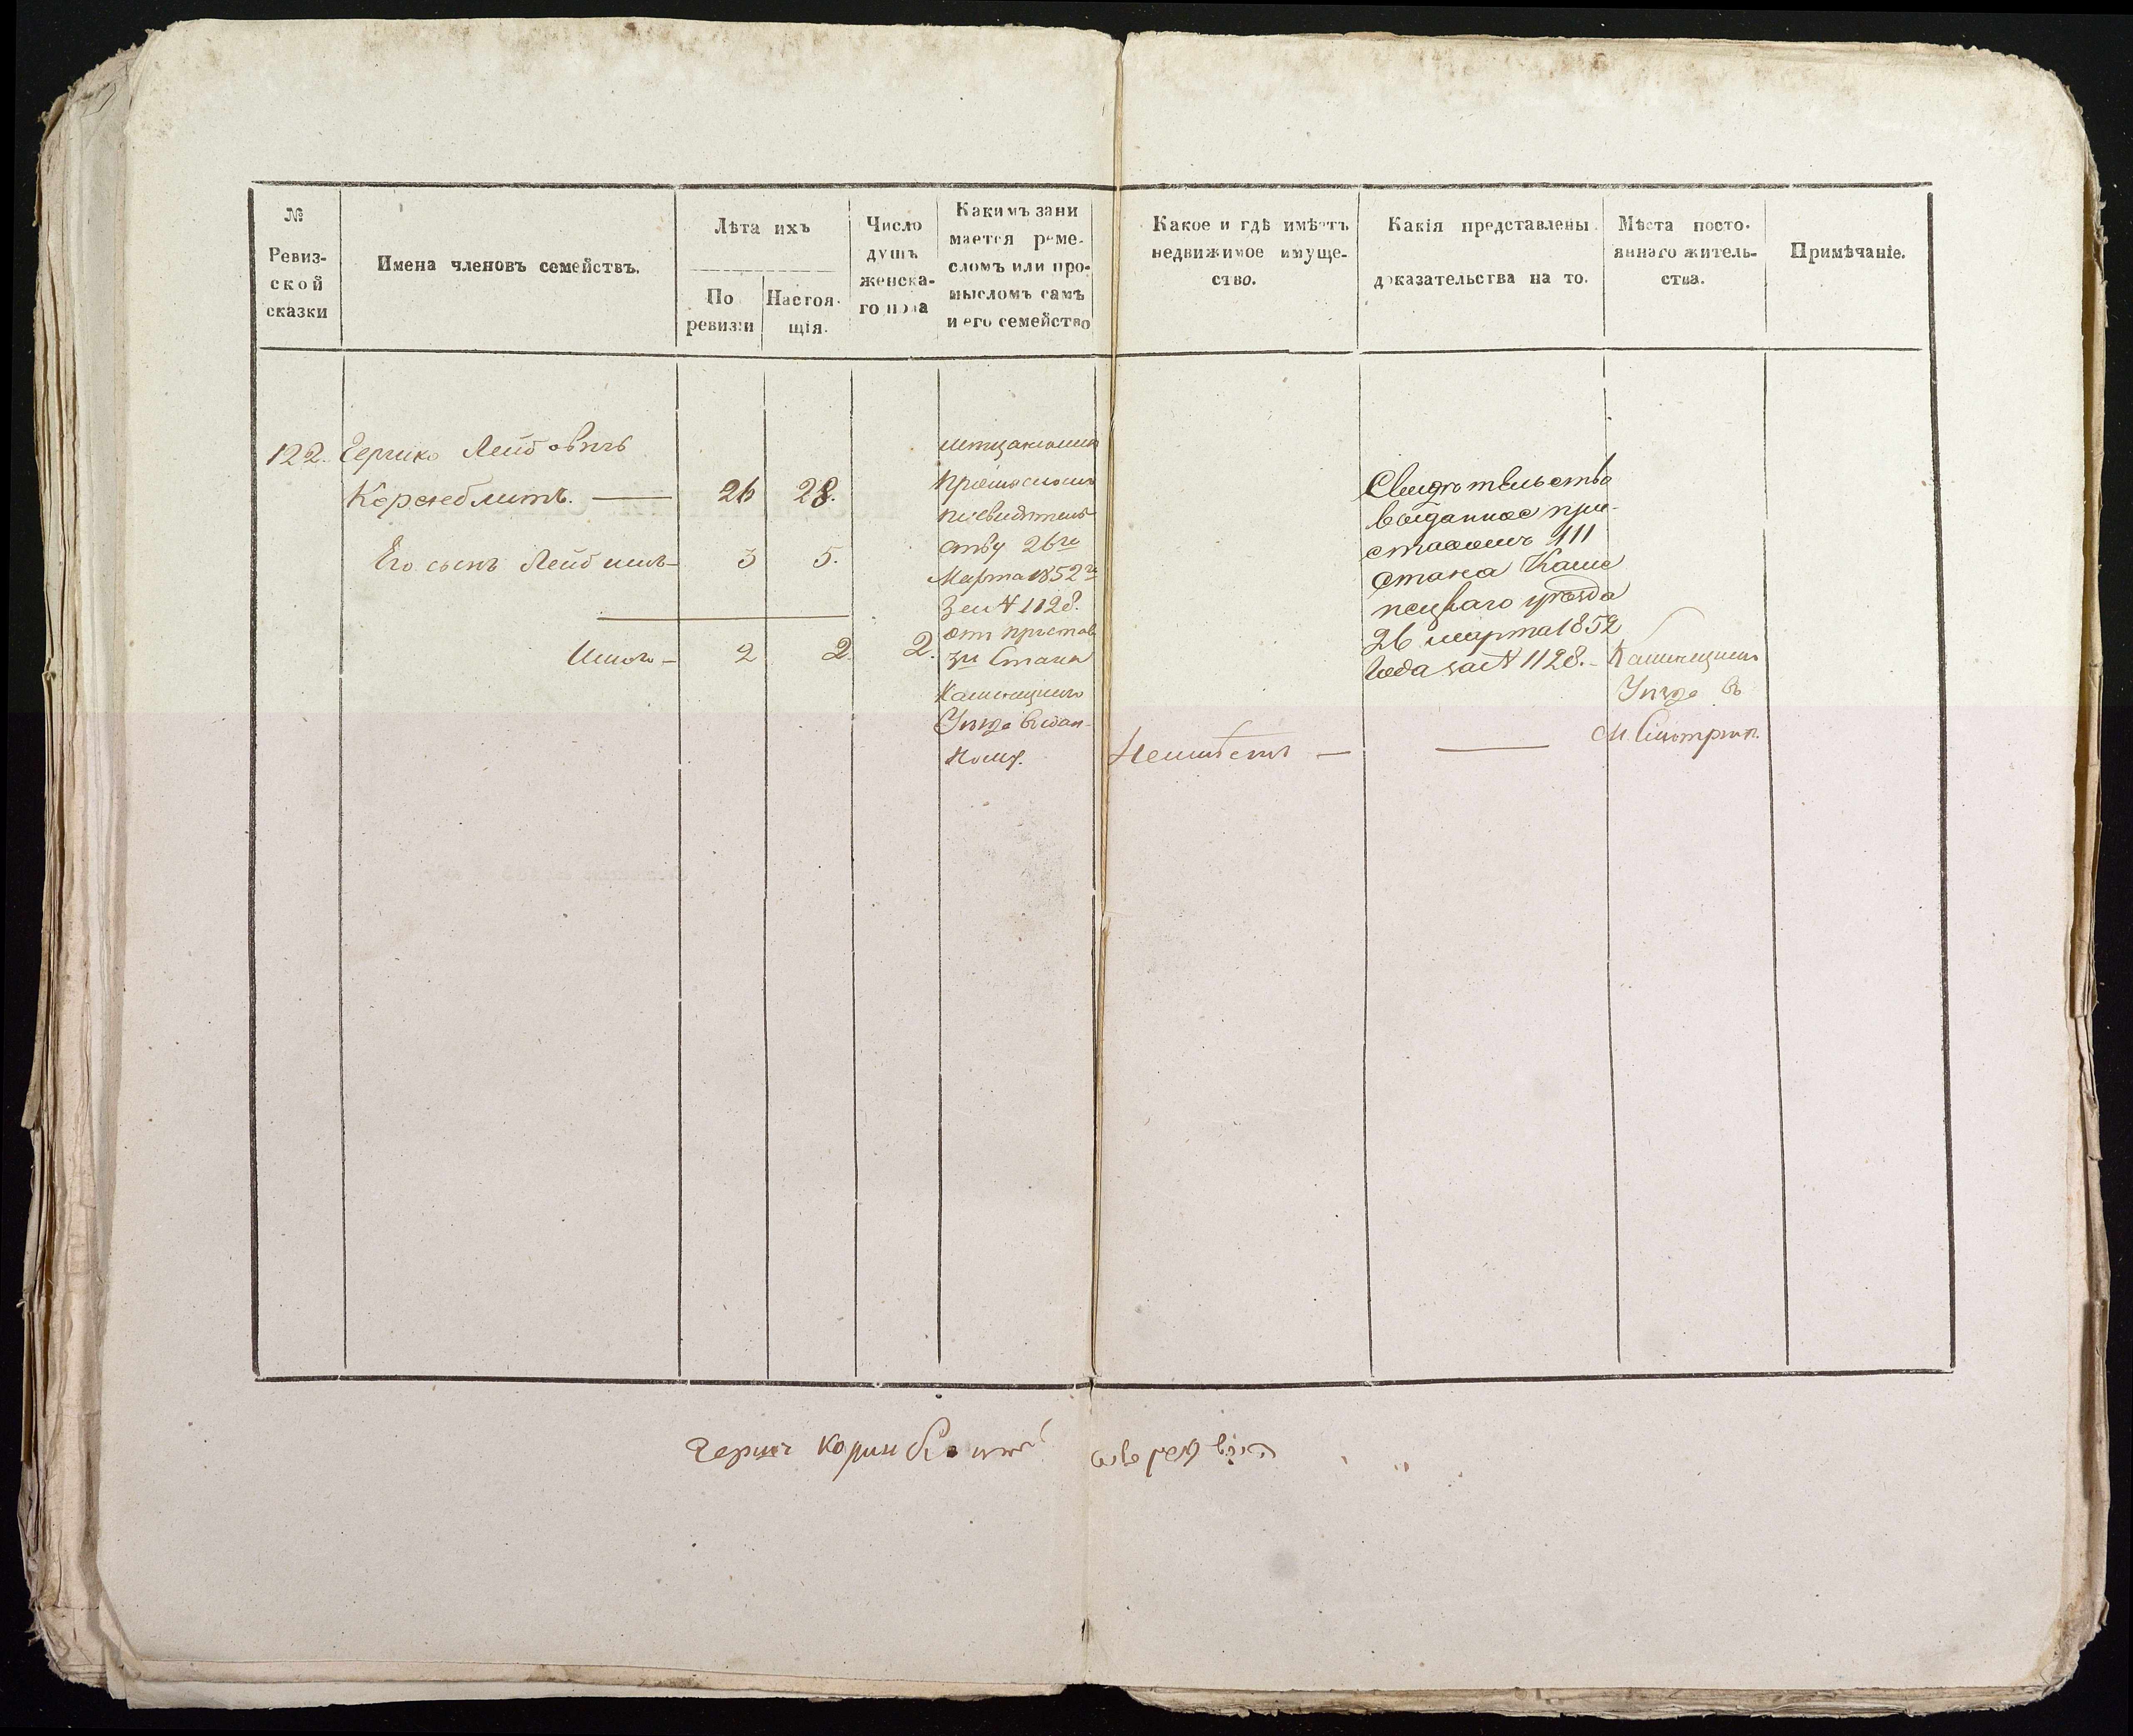 №
Ревиз-
ской
сказки
Имена членовъ семействъ.
Лѣта ихъ
По
ревизіи
Настоя-
щія.
Число
душъ
женска-
го пола
Какимъ зани
мается реме-
сломъ или про-
мысломъ самъ
и его семейство
Какое и гдѣ имѣетъ
недвижимое имуще-
ство.
Какія представлены
доказательства на то.
Мѣста посто-
яннаго житель-
ства.
Примѣчаніе.
122. Гершко Лейбовичъ
Коренблитъ. — 26 28.
Его сынъ Лейбишъ — 3 5.
Итого — 2 2. 2.
промысломъ
по свидѣтель-
ству 26го
Марта 1852го
За № 1128.
отъ пристава
3го Стана
Каменецкаго
Уѣзда выдан-
ному.
Неимѣетъ —
Свидѣтельство
выданное при-
ставомъ III
стана Каме
нецкаго уѣзда
26 марта 1852
года за № 1128. —
Каменецкаго
Уѣзда въ
М. Смотричѣ.
Гершъ